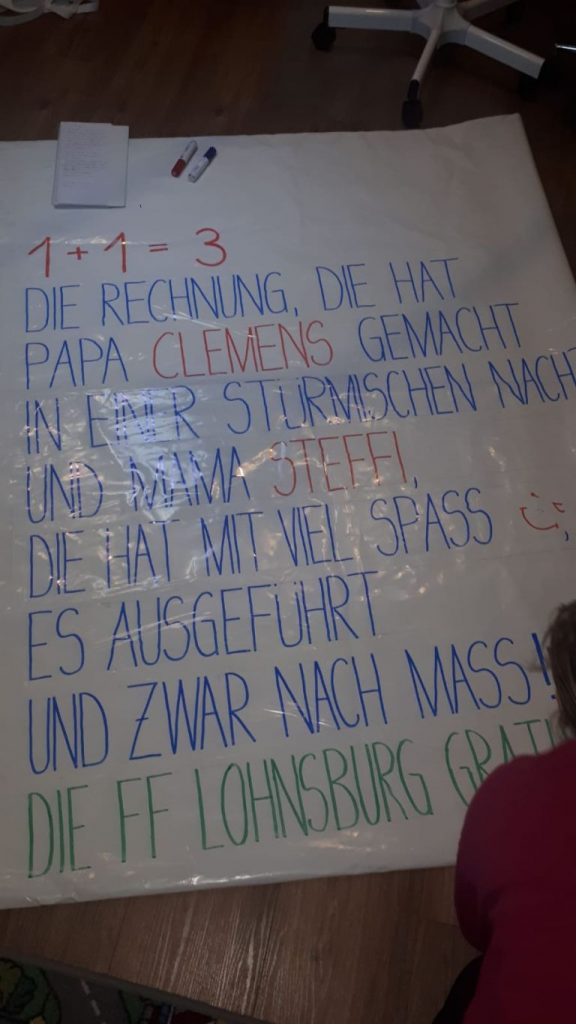 1 + 1 = 3
DIE RECHNUNG, DIE HAT
PAPA CLEMENS GEMACHT
IN EINER STÜRMISCHEN NACHT
UND MAMA STEFFI,
DIE HAT MIT VIEL SPASS ,
ES AUSGEFÜHRT
UND ZWAR NACH MASS!
DIE FF LOHNSBURG